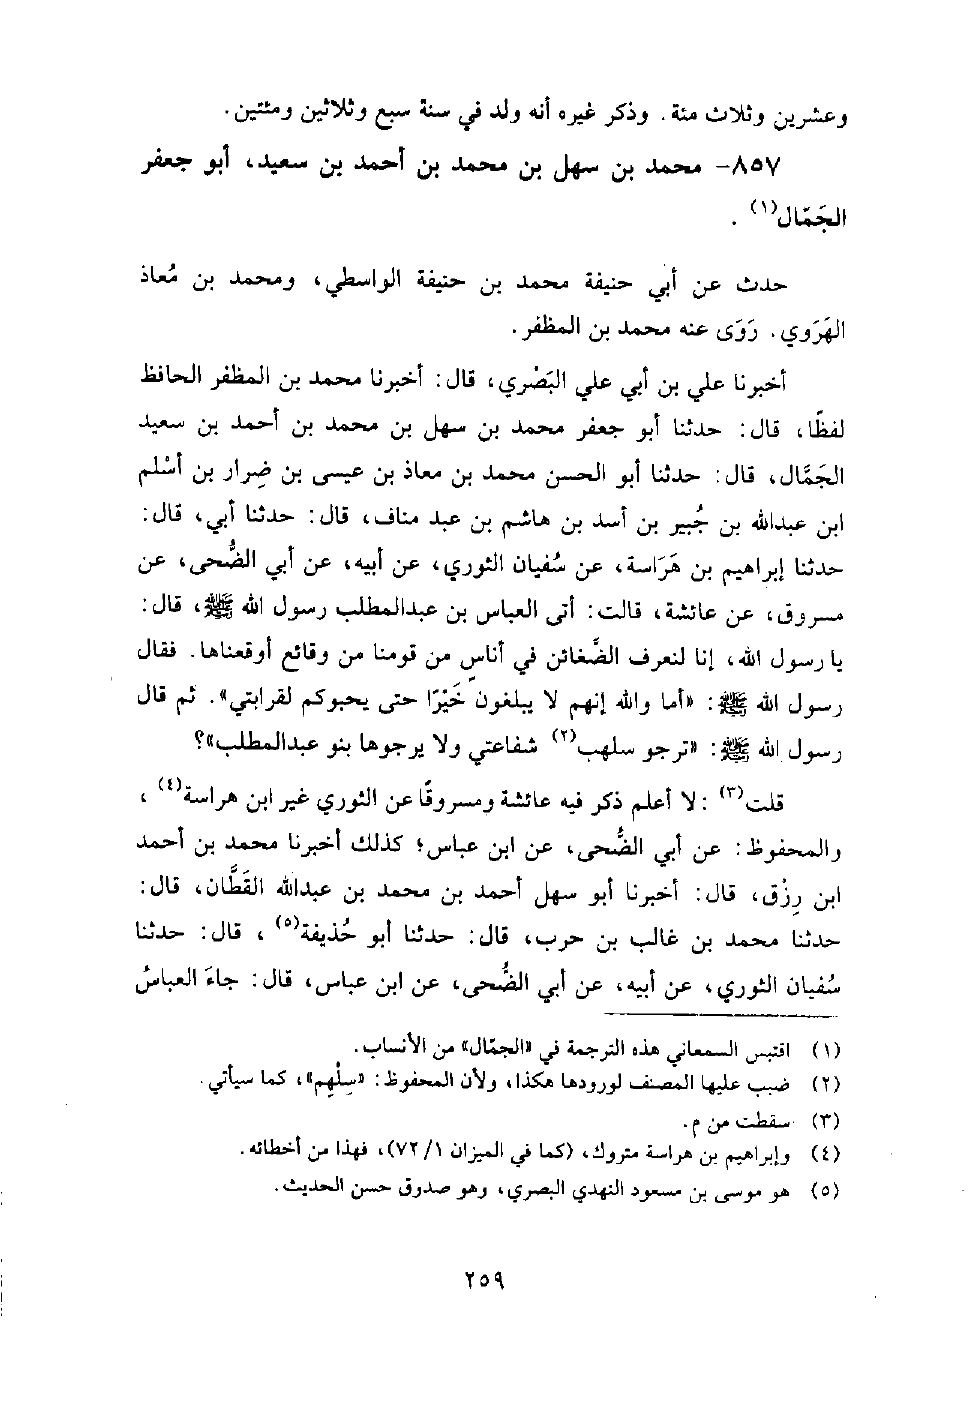 وعشرين وثلاث مئة. وذكر غيره أنه ولد في سنة سبع وثلاثين ومئتين.
٨٥٧- محمد بن سهل بن محمد بن أحمد بن سعيد، أبو جعفر
الجَمّال(١) .
حدث عن أبي حنيفة محمد بن حنيفة الواسطي، ومحمد بن مُعاذ
الهَرَوي. رَوَى عنه محمد بن المظفر.
أخبرنا علي بن أبي علي البَصْري، قال: أخبرنا محمد بن المظفر الحافظ
لفظًا، قال: حدثنا أبو جعفر محمد بن سهل بن محمد بن أحمد بن سعيد
الجَمَّال، قال: حدثنا أبو الحسن محمد بن معاذ بن عيسى بن ضِرار بن أسْلم
ابن عبدالله بن جُبير بن أسد بن هاشم بن عبد مناف، قال: حدثنا أبي، قال:
حدثنا إبراهيم بن هَرَاسة، عن سُفيان الثوري، عن أبيه، عن أبي الضُّحى، عن
مسروق، عن عائشة، قالت: أتى العباس بن عبدالمطلب رسول الله ﷺ، قال:
يا رسول الله، إنا لنعرف الضَّغائن في أناسٍ من قومنا من وقائع أوقعناها. فقال
رسول الله ﷺ: «أما والله إنهم لا يبلغون خَيْرًا حتى يحبوكم لقرابتي». ثم قال
رسول الله ﷺ: «ترجو سلهب(٢) شفاعتي ولا يرجوها بنو عبدالمطلب»؟
قلت(٣) :لا أعلم ذكر فيه عائشة ومسروقًا عن الثوري غير ابن هراسة(٤) ،
والمحفوظ: عن أبي الضُّحى، عن ابن عباس؛ كذلك أخبرنا محمد بن أحمد
ابن رِزْق، قال: أخبرنا أبو سهل أحمد بن محمد بن عبدالله القَطَّان، قال:
حدثنا محمد بن غالب بن حرب، قال: حدثنا أبو حُذيفة(٥) ، قال: حدثنا
سُفيان الثوري، عن أبيه، عن أبي الضُّحى، عن ابن عباس، قال: جاءَ العباسُ
(١) اقتبس السمعاني هذه الترجمة في «الجمّال» من الأنساب.
(٢) ضبب عليها المصنف لورودها هكذا، ولأن المحفوظ: «سِلْهِم»، كما سيأتي.
(٣) سقطت من م.
(٤) وإبراهيم بن هراسة متروك، (كما في الميزان ١/ ٧٢)، فهذا من أخطائه.
(٥) هو موسى بن مسعود النهدي البصري، وهو صدوق حسن الحديث.
٢٥٩